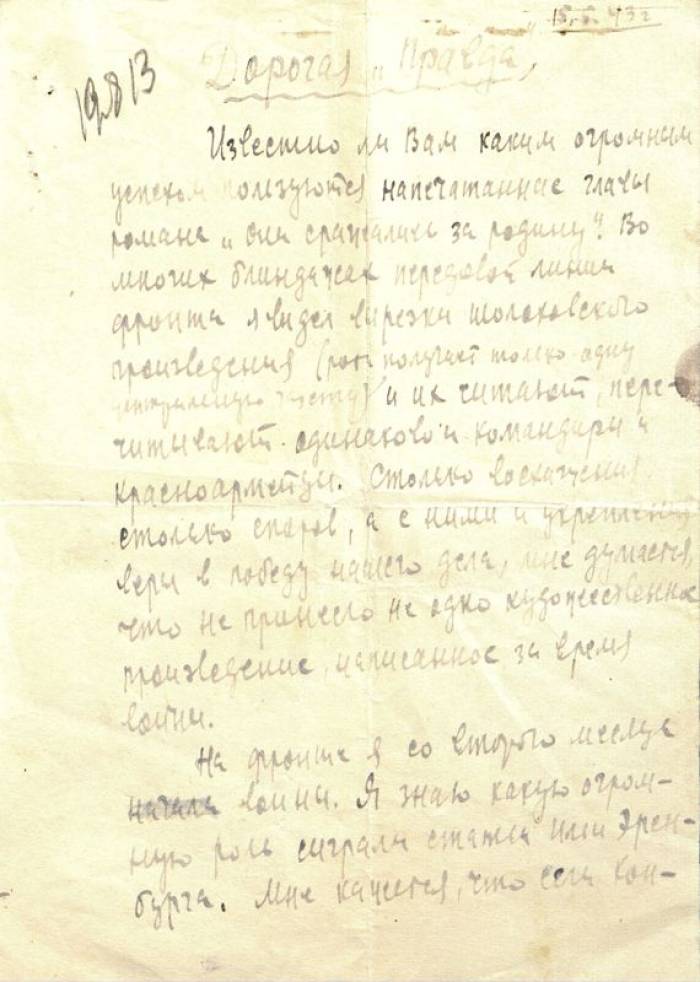 43г
19813
Дорогая „Правда“,
Известно ли Вам каким огромным
успехом пользуются напечатанные главы
романа „Они сражались за родину“? Во
многих блиндажах передовой линии
фронта я видел вырезки шолоховского
произведения (рота получает только одну
центральную газету) и их читают, пере-
читывают одинаково и командиры и
красноармейцы. Столько восхищения,
столько споров, а с ними и укрепления
веры в победу нашего дела, мне думается,
что не принесло не одно художественное
произведение, написанное за время
войны.
На фронте я со второго месяца
начала войны. Я знаю какую огром-
ную роль сыграли статьи Ильи Эрен-
бурга. Мне кажется, что если